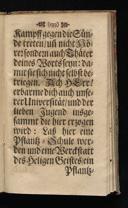 Kampff gegen die Sün-
de treten/ uñ nicht Hö-
rer sondern auch Thäter
deines Worts seyn: da-
mit sie sich nicht selbst be-
triegen. Ach HErr!
erbarme dich auch unse-
rer Universität/ und der
lieben Jugend insge-
sammt die hier erzogen
wird: Laß hier eine
Pflantz-Schule wer-
den und eine Werckstatt
des Heiligen Geistes ein
Pflantz-